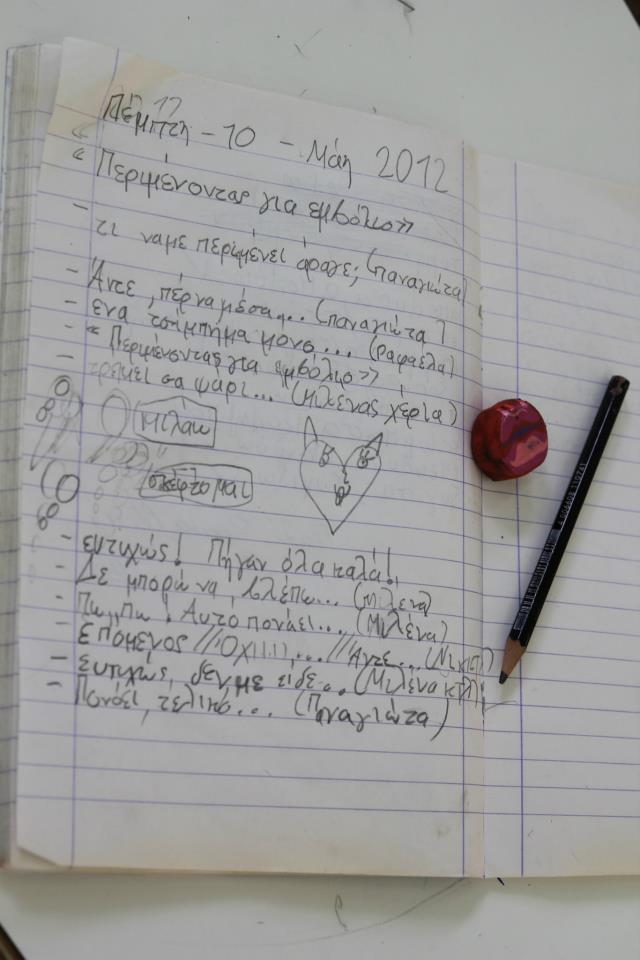 Πέμπτη - 10 - Μάη 2012
17
"
" Περιμένοντας για εμβόλιο"
- τι ναμε περιμένει άραγε; (παναγιώτα)
- Άντε, πέρνα μέσα... (παναγιώτα)
- ένα τσίμπημα μονο... (Ραφαέλα)
- " Περιμένοντας για εμβόλιο"
- τρέμει σα ψάρι... (Μιλένας χέρια)
μιλάω
σκέφτομαι
- ευτυχώς! Πήγαν όλα καλά!
- Δε μπορώ να βλέπω... (Μιλένα)
- Πω, πω! Αυτό πονάει... (Μιλένα)
- Επόμενος // Όχι!!),...//Άντε...
- Ευτυχώς, δεν με είδε... (Μιλένα κτλ)
- Πονάει, τελικα.... (Παναγιώτα)